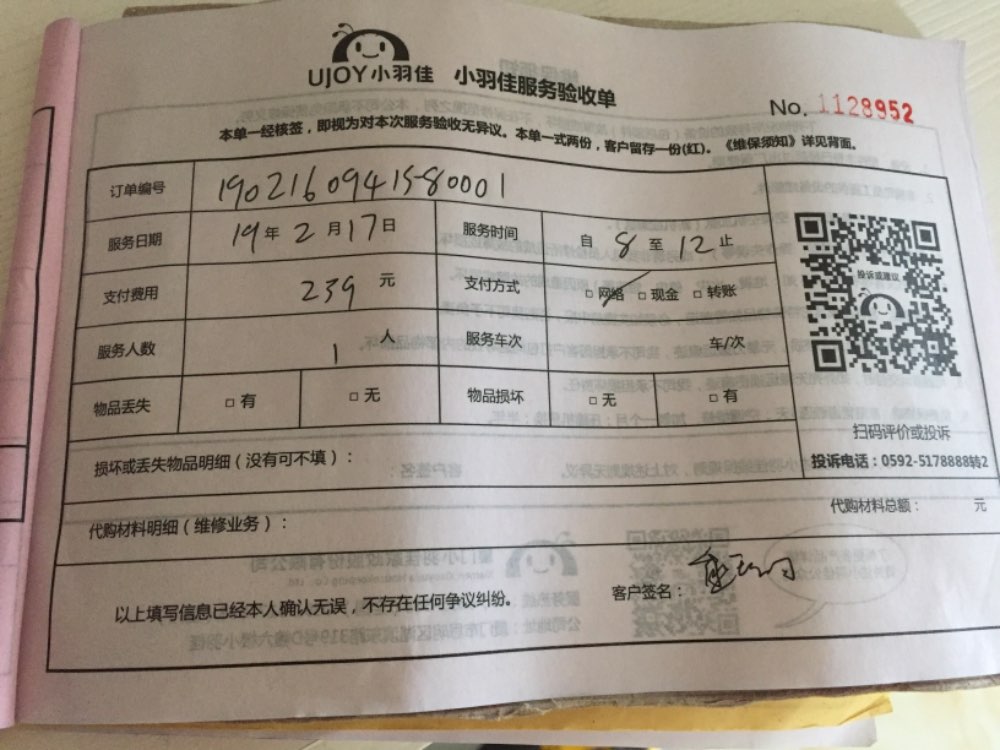 UJOY小羽佳 小羽佳服务验收单
No. 1128952
本单一经核签，即视为对本次服务验收无异议。本单一式两份，客户留存一份(红)。《维保须知》详见背面。
订单编号 1902160941580001
服务日期 19年2月17日 服务时间 自8至12止
支付费用 239元 支付方式 □网络 □现金 □转账
服务人数 1人 服务车次 车/次
物品丢失 □有 □无 物品损坏 □无 □有
投诉或建议
扫码评价或投诉
投诉电话：0592-5178888转2
损坏或丢失物品明细（没有可不填）：
代购材料明细（维修业务）： 代购材料总额： 元
以上填写信息已经本人确认无误，不存在任何争议纠纷。 客户签名：